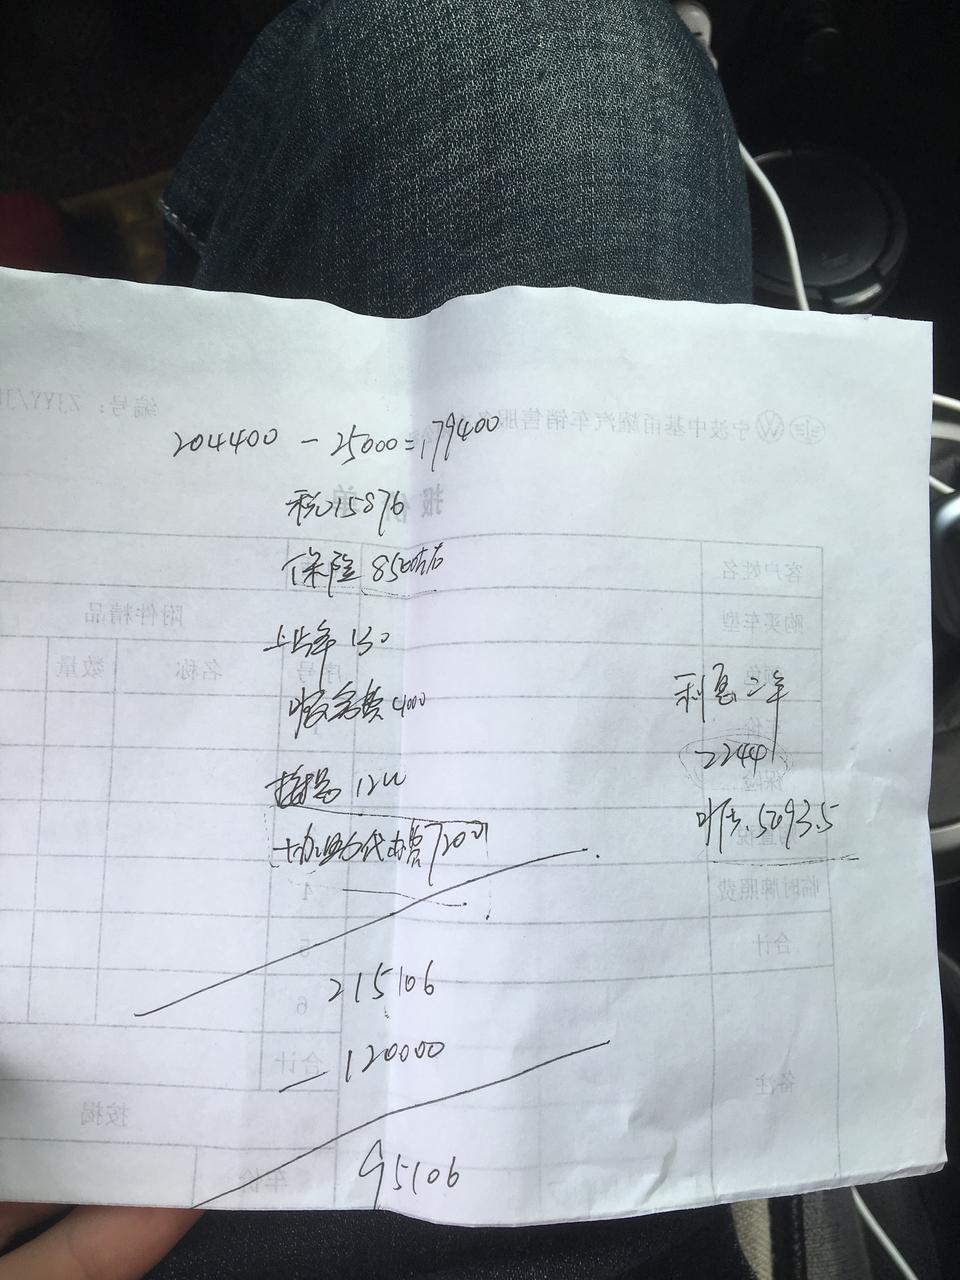 编号：ZJYY/J
宁波中基甬耀汽车销售服务
204400 - 25000=179400
报价单
税 15876
保险 8500左右
客户姓名
附件精品
购买车型
上牌 130
序号 名称 数量
颜色
4000
利息 二年
车价
2244
保险
1200
代办费 7200
月供 5093.5
临时牌照费
4
合计
5
215106
6
-120000
合计
备注
按揭
95106
车价